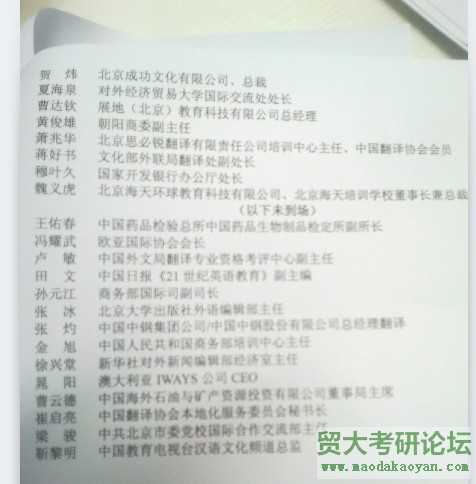 贺 炜 北京成功文化有限公司、总裁
夏海泉 对外经济贸易大学国际交流处处长
曹达钦 展地（北京）教育科技有限公司总经理
黄俊雄 朝阳商委副主任
萧兆华 北京思必锐翻译有限责任公司培训中心主任、中国翻译协会会员
蒋好书 文化部外联局翻译处副处长
穆叶久 国家开发银行办公厅处长
魏义虎 北京海天环球教育科技有限公司、北京海天培训学校董事长兼总裁
（以下未到场）
王佑春 中国药品检验总所中国药品生物制品检定所副所长
冯耀武 欧亚国际协会会长
卢 敏 中国外文局翻译专业资格考评中心副主任
田 文 中国日报《21世纪英语教育》副主编
孙元江 商务部国际司副司长
张 冰 北京大学出版社外语编辑部主任
张 灼 中国中钢集团公司/中国中钢股份有限公司总经理翻译
金 旭 中国人民共和国商务部培训中心主任
徐兴堂 新华社对外新闻编辑部经济室主任
晁 阳 澳大利亚IWAYS公司CEO
曹云德 中国海外石油与矿产资源投资有限公司董事局主席
崔启亮 中国翻译协会本地化服务委员会秘书长
梁 骏 中共北京市委党校国际合作交流部主任
靳黎明 中国教育电视台汉语文化频道总监
贸大考研论坛
www.maodakaoyan.com